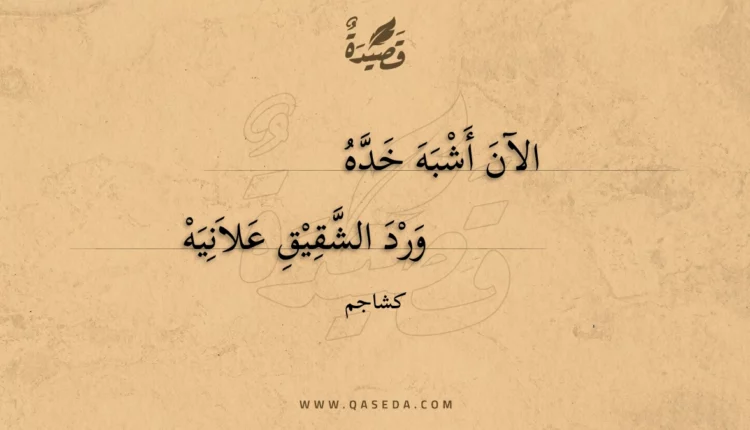 قَصِيدَةٌ
الآنَ أَشْبَهَ خَدَّهُ
وَرْدَ الشَّقِيْقِ عَلاَنِيَهْ
كشاجم
WWW.QASEDA.COM